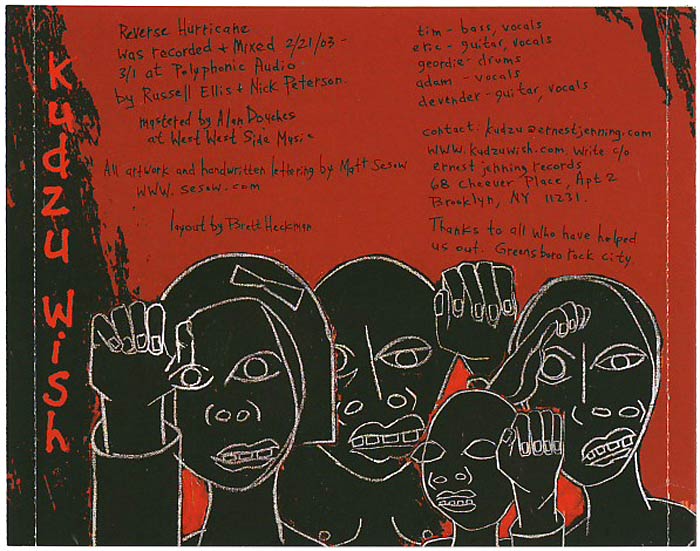 Kudzu Wish
Reverse Hurricane
was recorded + Mixed 2/21/03 -
3/1 at Polyphonic Audio
by Russell Ellis + Nick Peterson.
mastered by Alan Douches
at West West Side Music
All artwork and handwritten lettering by Matt Sesow
WWW. sesow.com
layout by Brett Heckman
tim - bass, vocals
eric - guitar, vocals
geordie - drums
adam - vocals
devender - guitar, vocals
contact: kudzu@ernestjenning.com
WWW.kudzuwish.com. Write c/o
ernest jenning records
68 Cheever Place, Apt 2
Brooklyn, NY 11231.
Thanks to all who have helped
us out. Greensboro rock city.